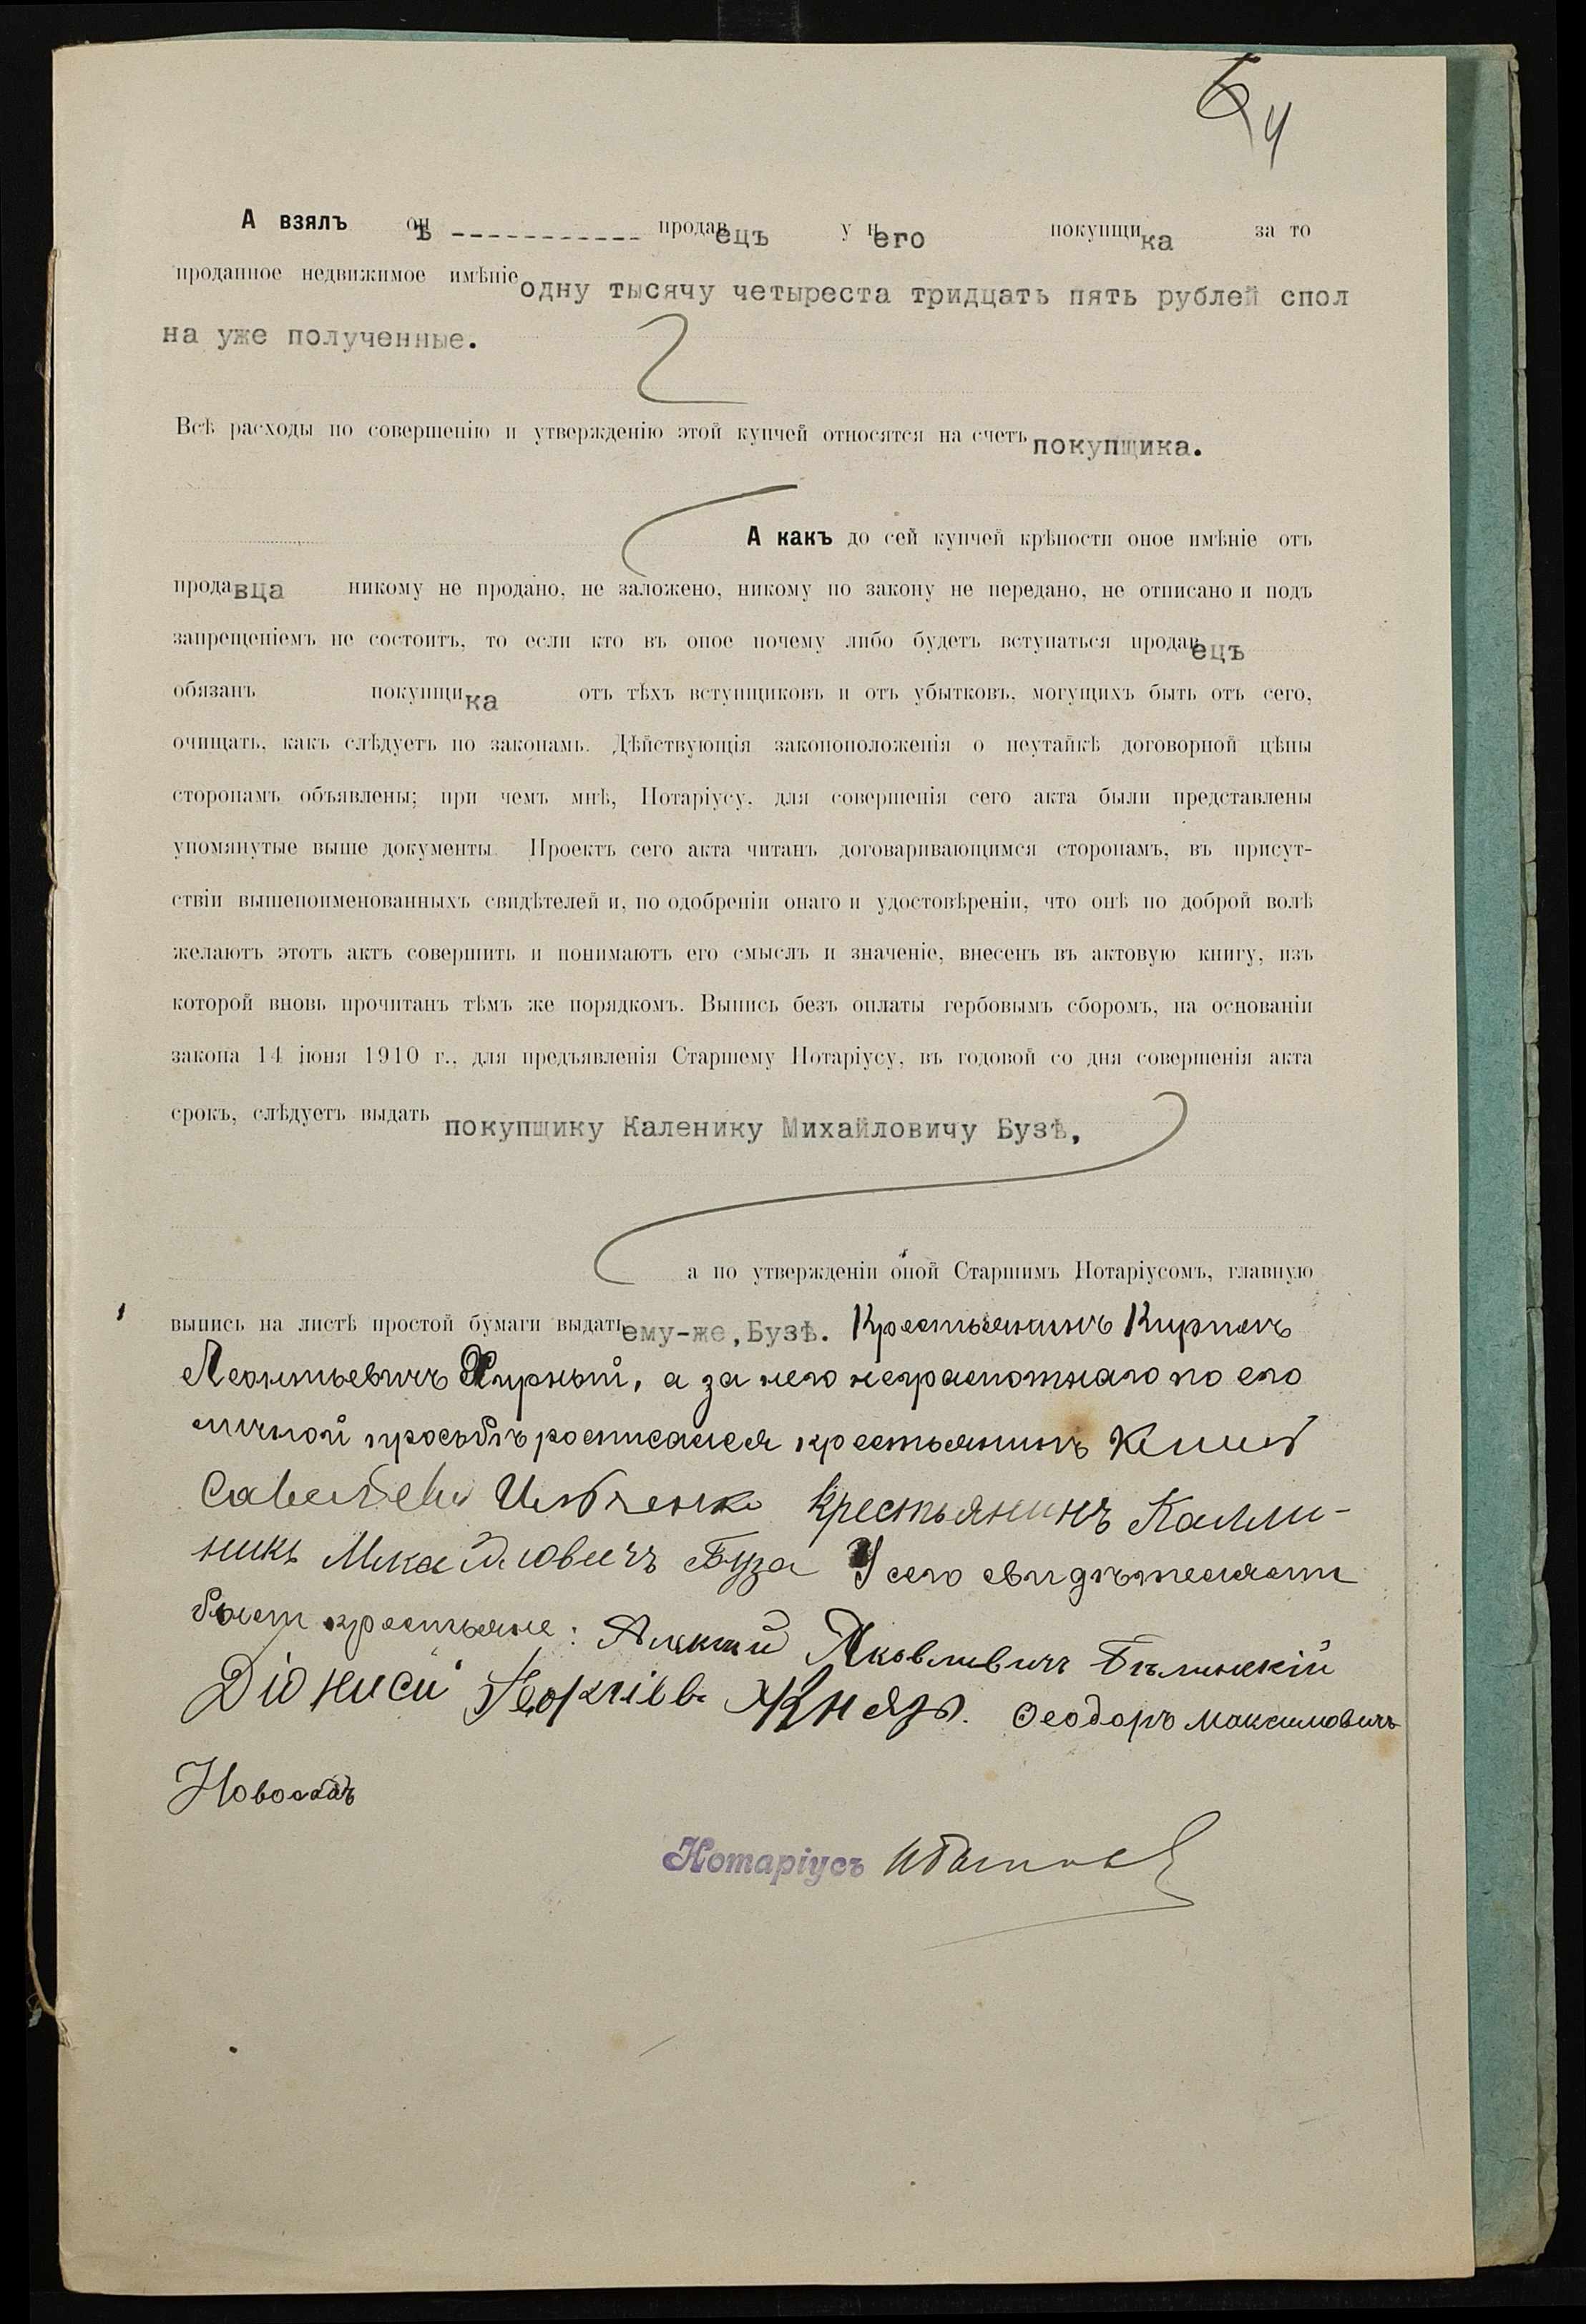 4
А взялъ онъ ------------ продавецъ у него покупщика за то
проданное недвижимое имѣніе одну тысячу четыреста тридцать пять рублей спол
на уже полученные.
Всѣ расходы по совершенію и утвержденію этой купчей относятся на счетъ покупщика.
А какъ до сей купчей крѣпости оное имѣніе отъ
продавца никому не продано, не заложено, никому по закону не передано, не отписано и подъ
запрещеніемъ не состоитъ, то если кто въ оное почему либо будетъ вступаться продавецъ
обязанъ покупщика отъ тѣхъ вступщиковъ и отъ убытковъ, могущихъ быть отъ сего,
очищать, какъ слѣдуетъ по законамъ. Дѣйствующія законоположенія о неутайкѣ договорной цѣны
сторонамъ объявлены; при чемъ мнѣ, Нотаріусу, для совершенія сего акта были представлены
упомянутые выше документы. Проектъ сего акта читанъ договаривающимся сторонамъ, въ присут-
ствіи вышепоименованныхъ свидѣтелей и, по одобреніи онаго и удостовѣреніи, что онѣ по доброй волѣ
желаютъ этотъ актъ совершить и понимаютъ его смыслъ и значеніе, внесенъ въ актовую книгу, изъ
которой вновь прочитанъ тѣмъ же порядкомъ. Выпись безъ оплаты гербовымъ сборомъ, на основаніи
закона 14 іюня 1910 г., для предъявленія Старшему Нотаріусу, въ годовой со дня совершенія акта
срокъ, слѣдуетъ выдать покупщику Каленику Михайловичу Бузѣ,
а по утвержденіи оной Старшимъ Нотаріусомъ, главную
выпись на листѣ простой бумаги выдать ему-же, Бузѣ. Крестьянинъ Кирпоъ
Леонтьевичъ Жирный, а за него неграмотнаго по его
личной просьбѣ росписался крестьянинъ
Савельевъ Крестьянинъ Калли-
никъ Михайловичъ Буза У сего свидѣтелями
были крестьяне: Алексѣй Яковлевичъ Бѣлинскій
Діонисій Георгіевъ Князь. Ѳеодоръ Максимовичъ
Новосадъ
Нотаріусъ